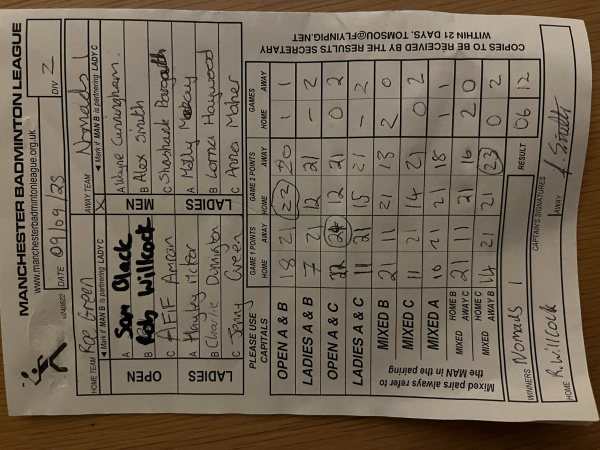 MANCHESTER BADMINTON LEAGUE
www.manchesterbadmintonleague.org.uk
v240622 DATE 09/09/25 DIV 2
HOME TEAM Rop Green AWAY TEAM Nomads 1
◄ Mark if MAN B is partnering LADY C X ◄ Mark if MAN B is partnering LADY C
OPEN A Sam Clack MEN A Wayne Cunningham
B Rob Willcock B Alex Smith
C AFIF Amran C Shashank
LADIES A Hayley LADIES A Molly
B Charlie Dunnington B Lorna Haywood
C Jenny Green C Anna Maher
PLEASE USE CAPITALS GAME 1 POINTS GAME 2 POINTS GAMES
HOME AWAY HOME AWAY HOME AWAY
OPEN A & B 18 21 22 20 1 1
LADIES A & B 7 21 12 21 - 2
OPEN A & C 22 24 12 21 0 2
LADIES A & C 11 21 21 - 2
MIXED B 21 11 21 13 2 0
MIXED C 11 21 14 21 0 2
MIXED A 10 21 21 18 1 1
MIXED HOME B AWAY C 21 11 21 16 2 0
MIXED HOME C AWAY B 14 21 21 23 0 2
Mixed pairs always refer to the MAN in the pairing
RESULT 06 12
WINNERS Nomads 1
CAPTAIN'S SIGNATURES
HOME R. Willcock AWAY A. Smith
COPIES TO BE RECEIVED BY THE RESULTS SECRETARY
WITHIN 21 DAYS. TOMSOU@FLYINPIG.NET